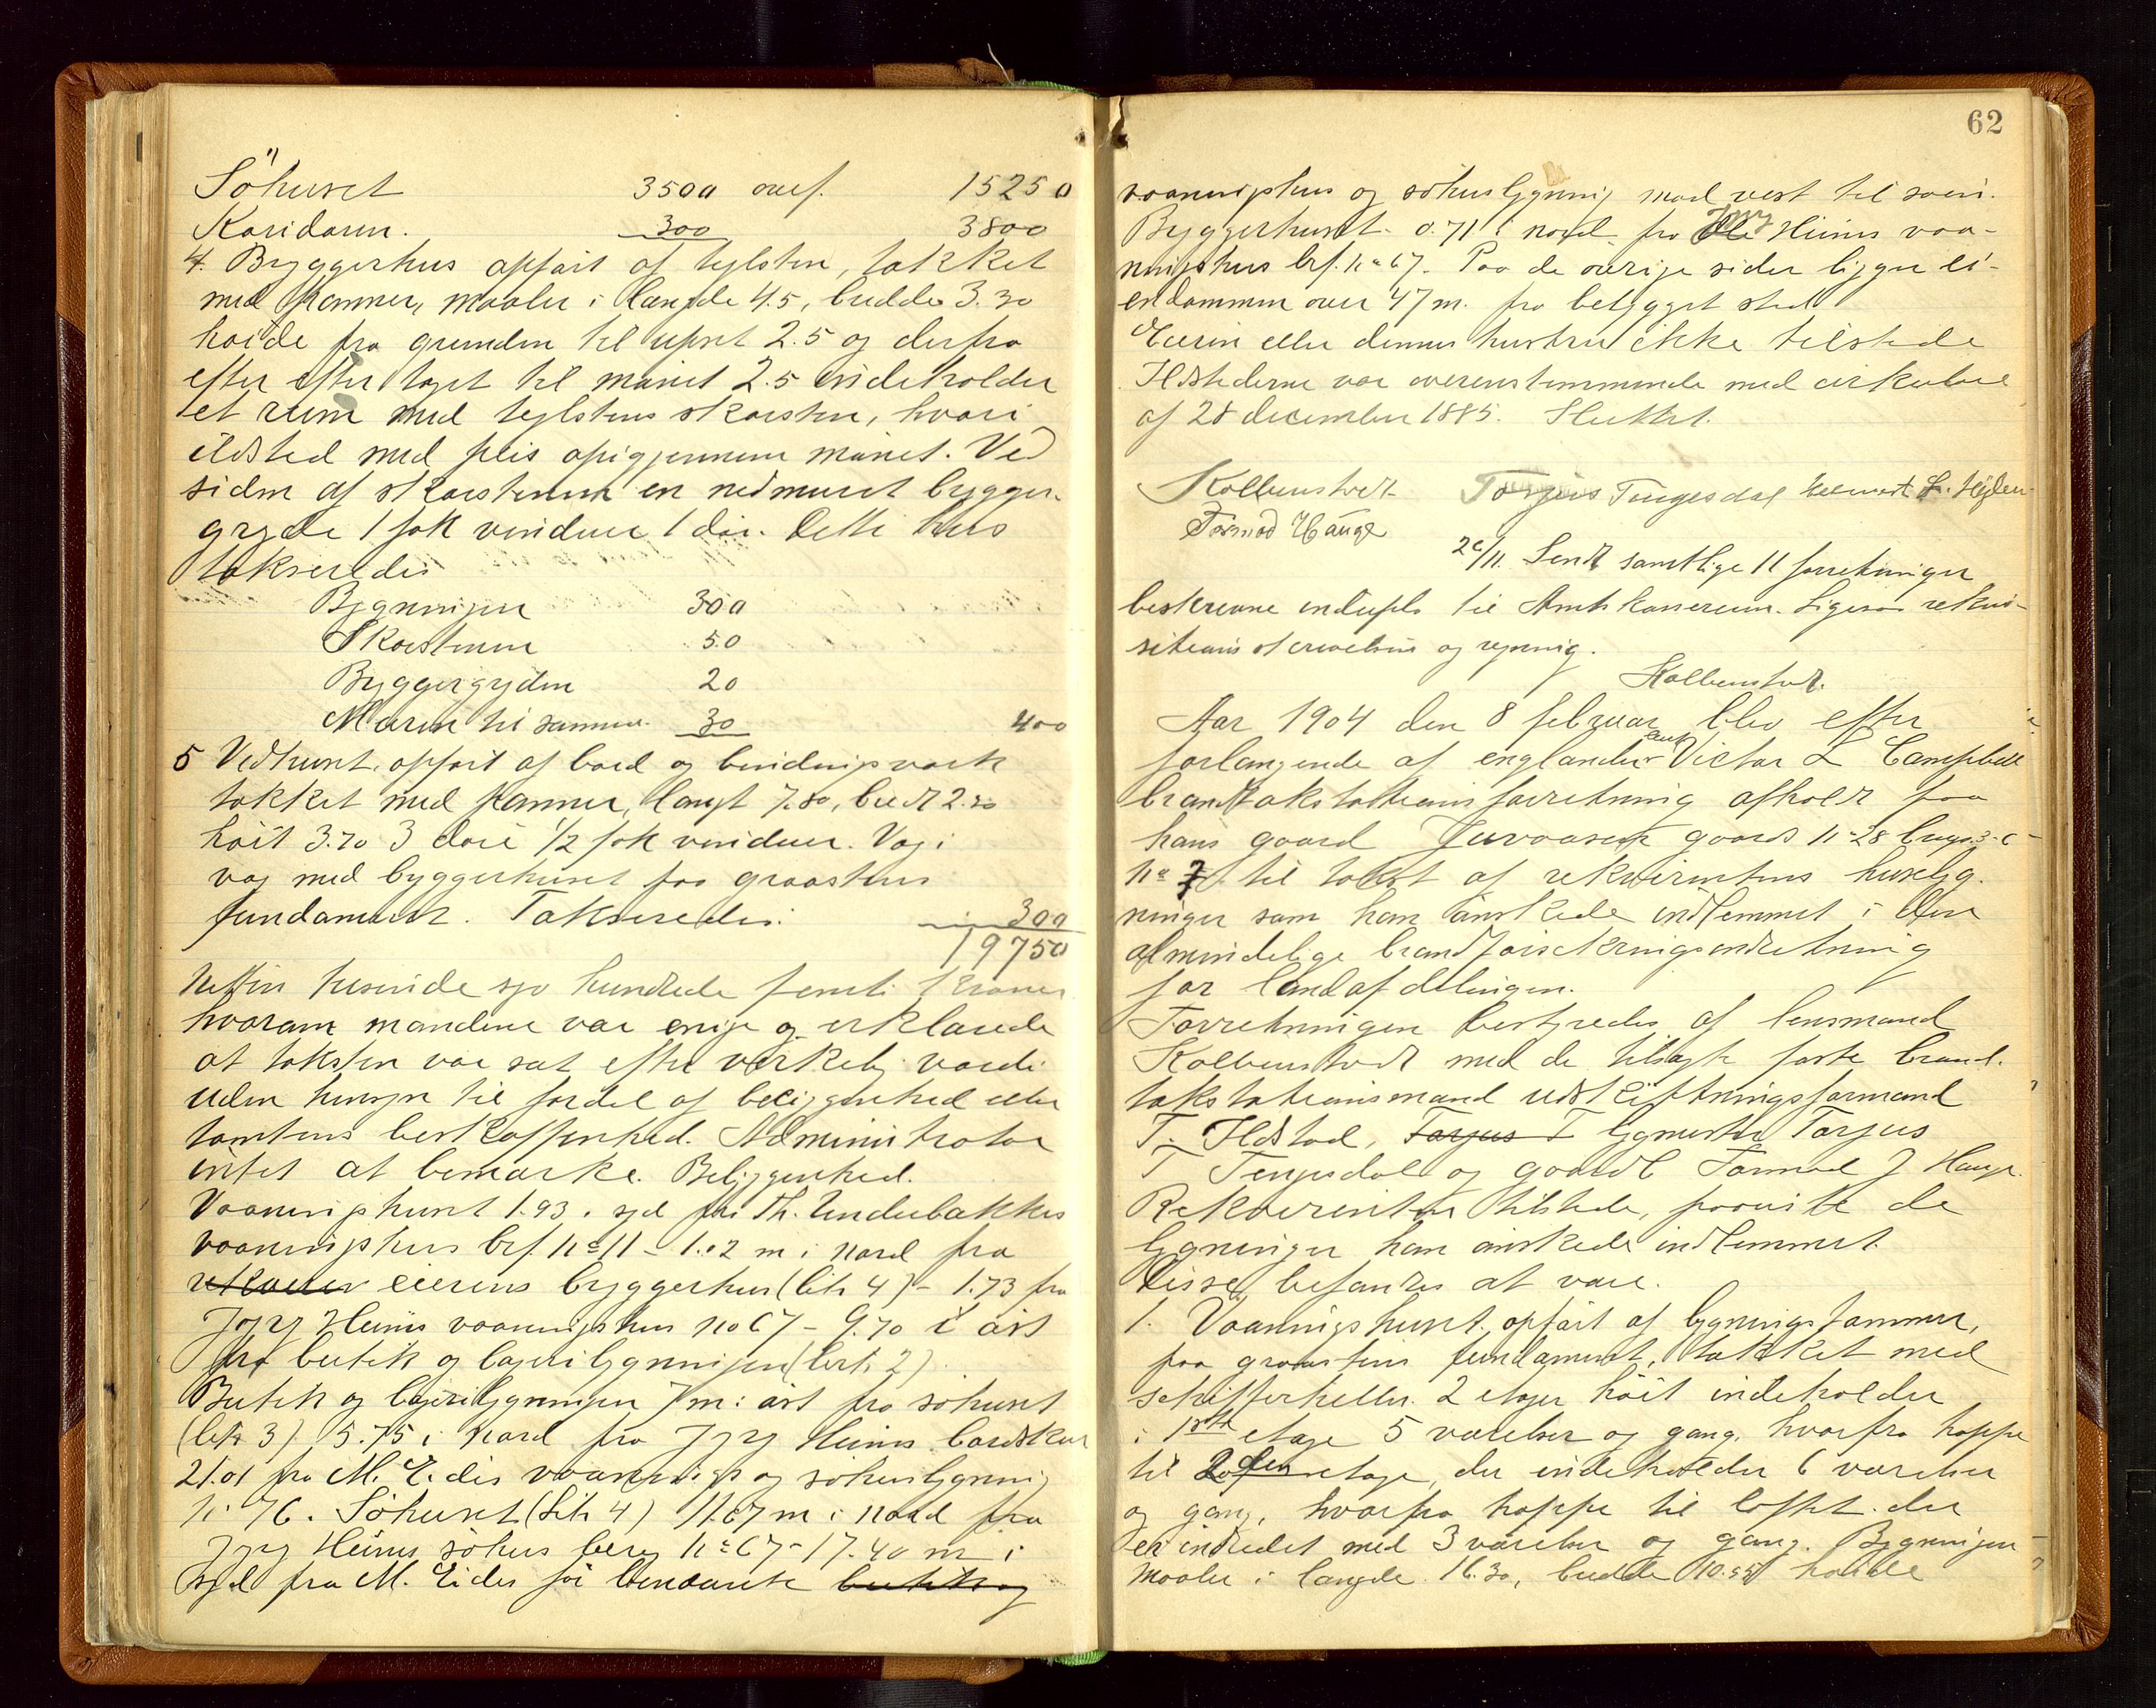 Söhuset 3500 overf. 15250
Koridoren. 300 3800
4. Bryggerhus opfört af teglsten, tækket
med panner, maaler i længde 4.5, bredde 3.30
höide fra grunden til upset 2.5 og derfra
efter efter taget til mönet 2.5 indeholder
et rum med teglstens skorsten, hvori
ildsted med peis opigjennem mönet. Ved
siden af skorstenen en nedmuret brygger-
gryde 1 fok vinduer 1 dör. Dette hus
takseredes
Bygningen 300
Skorstenen 50
Bryggergryden 20
Muren til samme 30 400
5 Vedhuset opfört af bord og bindingsværk
tækket med panner, langt 7.80, bredt 2.20
höit 3.70 3 döre 1/2 fok vinduer. Væg i
væg med bryggerhuset paa graastens
fundament. Takseredes: 300
19750
Nitten tusinde syv hundrede femti kroner
hvorom mændene var enige og erklærede
at taksten var sat efter virkelig værdi
uden hensyn til fordel af beliggenhed eller
tomtens beskaffenhed. Administrator
intet at bemærke. Beliggenhed.
Vaaningshuset 1.93 i syd fra Th. Underbakkes
vaaningshus brf. no 11 - 1.02 m i nord fra
eierens bryggerhus (litr 4) - 1.73 fra
Jgrg Heims vaaningshus no 67 - 9.70 i öst
fra butik og lagerbygningen (litr. 2).
Butik og lagerbygningen 7 m i öst fra söhuset
(litr 3) 5.75 i nord fra Jgrg Heims bordskur
21.01 fra M. Eides vaanings og söhusbygning
no 76. Söhuset (Litr 4) 11.67 m i nord fra
Jgrg Heims söhus berg no 67 - 17.40 m i
syd fra M. Eides för benævnte butik og
62
vaaningshus og söhusbygning mod vest til söen.
Bryggerhuset 0.71 i nord fra Jgrg Heims vaa-
ningshus brf. no 67. Paa de övrige sider ligger ei-
endommen over 47 m. fra bebygget sted
Eieren eller dennes hustru ikke tilstede
Ildstederne var overensstemmende med cirkulære
af 28 december 1885. Sluttet.
Kolbenstvedt Torjus Tengesdal
Tormod Hauge
20/11. Sendt samtlige 11 forretninger
beskrevne indupl. til Amtskassereren. Ligesaa rekvi-
sitions skrivelsene og regning.
Kolbenstvedt.
Aar 1904 den 8 februar blev efter
forlangende af englænder Victor L Campbell
brandtakstationsforretning afholdt paa
hans gaard Juvaasen gaards no 28 brugs 3-6
no 7 til takst af rekvirentens husbyg.
ninger som han önskede indlemmet i den
almindelige brandforsikringsindretning
for landafdelingen.
Forretningen bestyredes af lensmand
Kolbenstvedt med de tilsagte faste brand-
takstationsmænd udskiftningsformand
T. Ildstad, Torjus T bygmester Torjus
T Tengesdal og gaardb Tormod J Hauge.
Rekvirenten tilstede, paaviste de
bygninger han önskede indlemmet.
Disse befandtes at være.
1. Vaaningshuset opfört af bygningstömmer,
paa graastens fundament, tækket med
skifferheller 2 etager höit indeholder
i 1ste etage 5 værelser og gang, hvorfra trappe
til 2den etage, der indeholder 6 værelser
og gang, hvorfra trappe til loftet der
er indredet med 3 værelser og gang. Bygningen
maaler i længde 16.30, bredde 10.55 höide